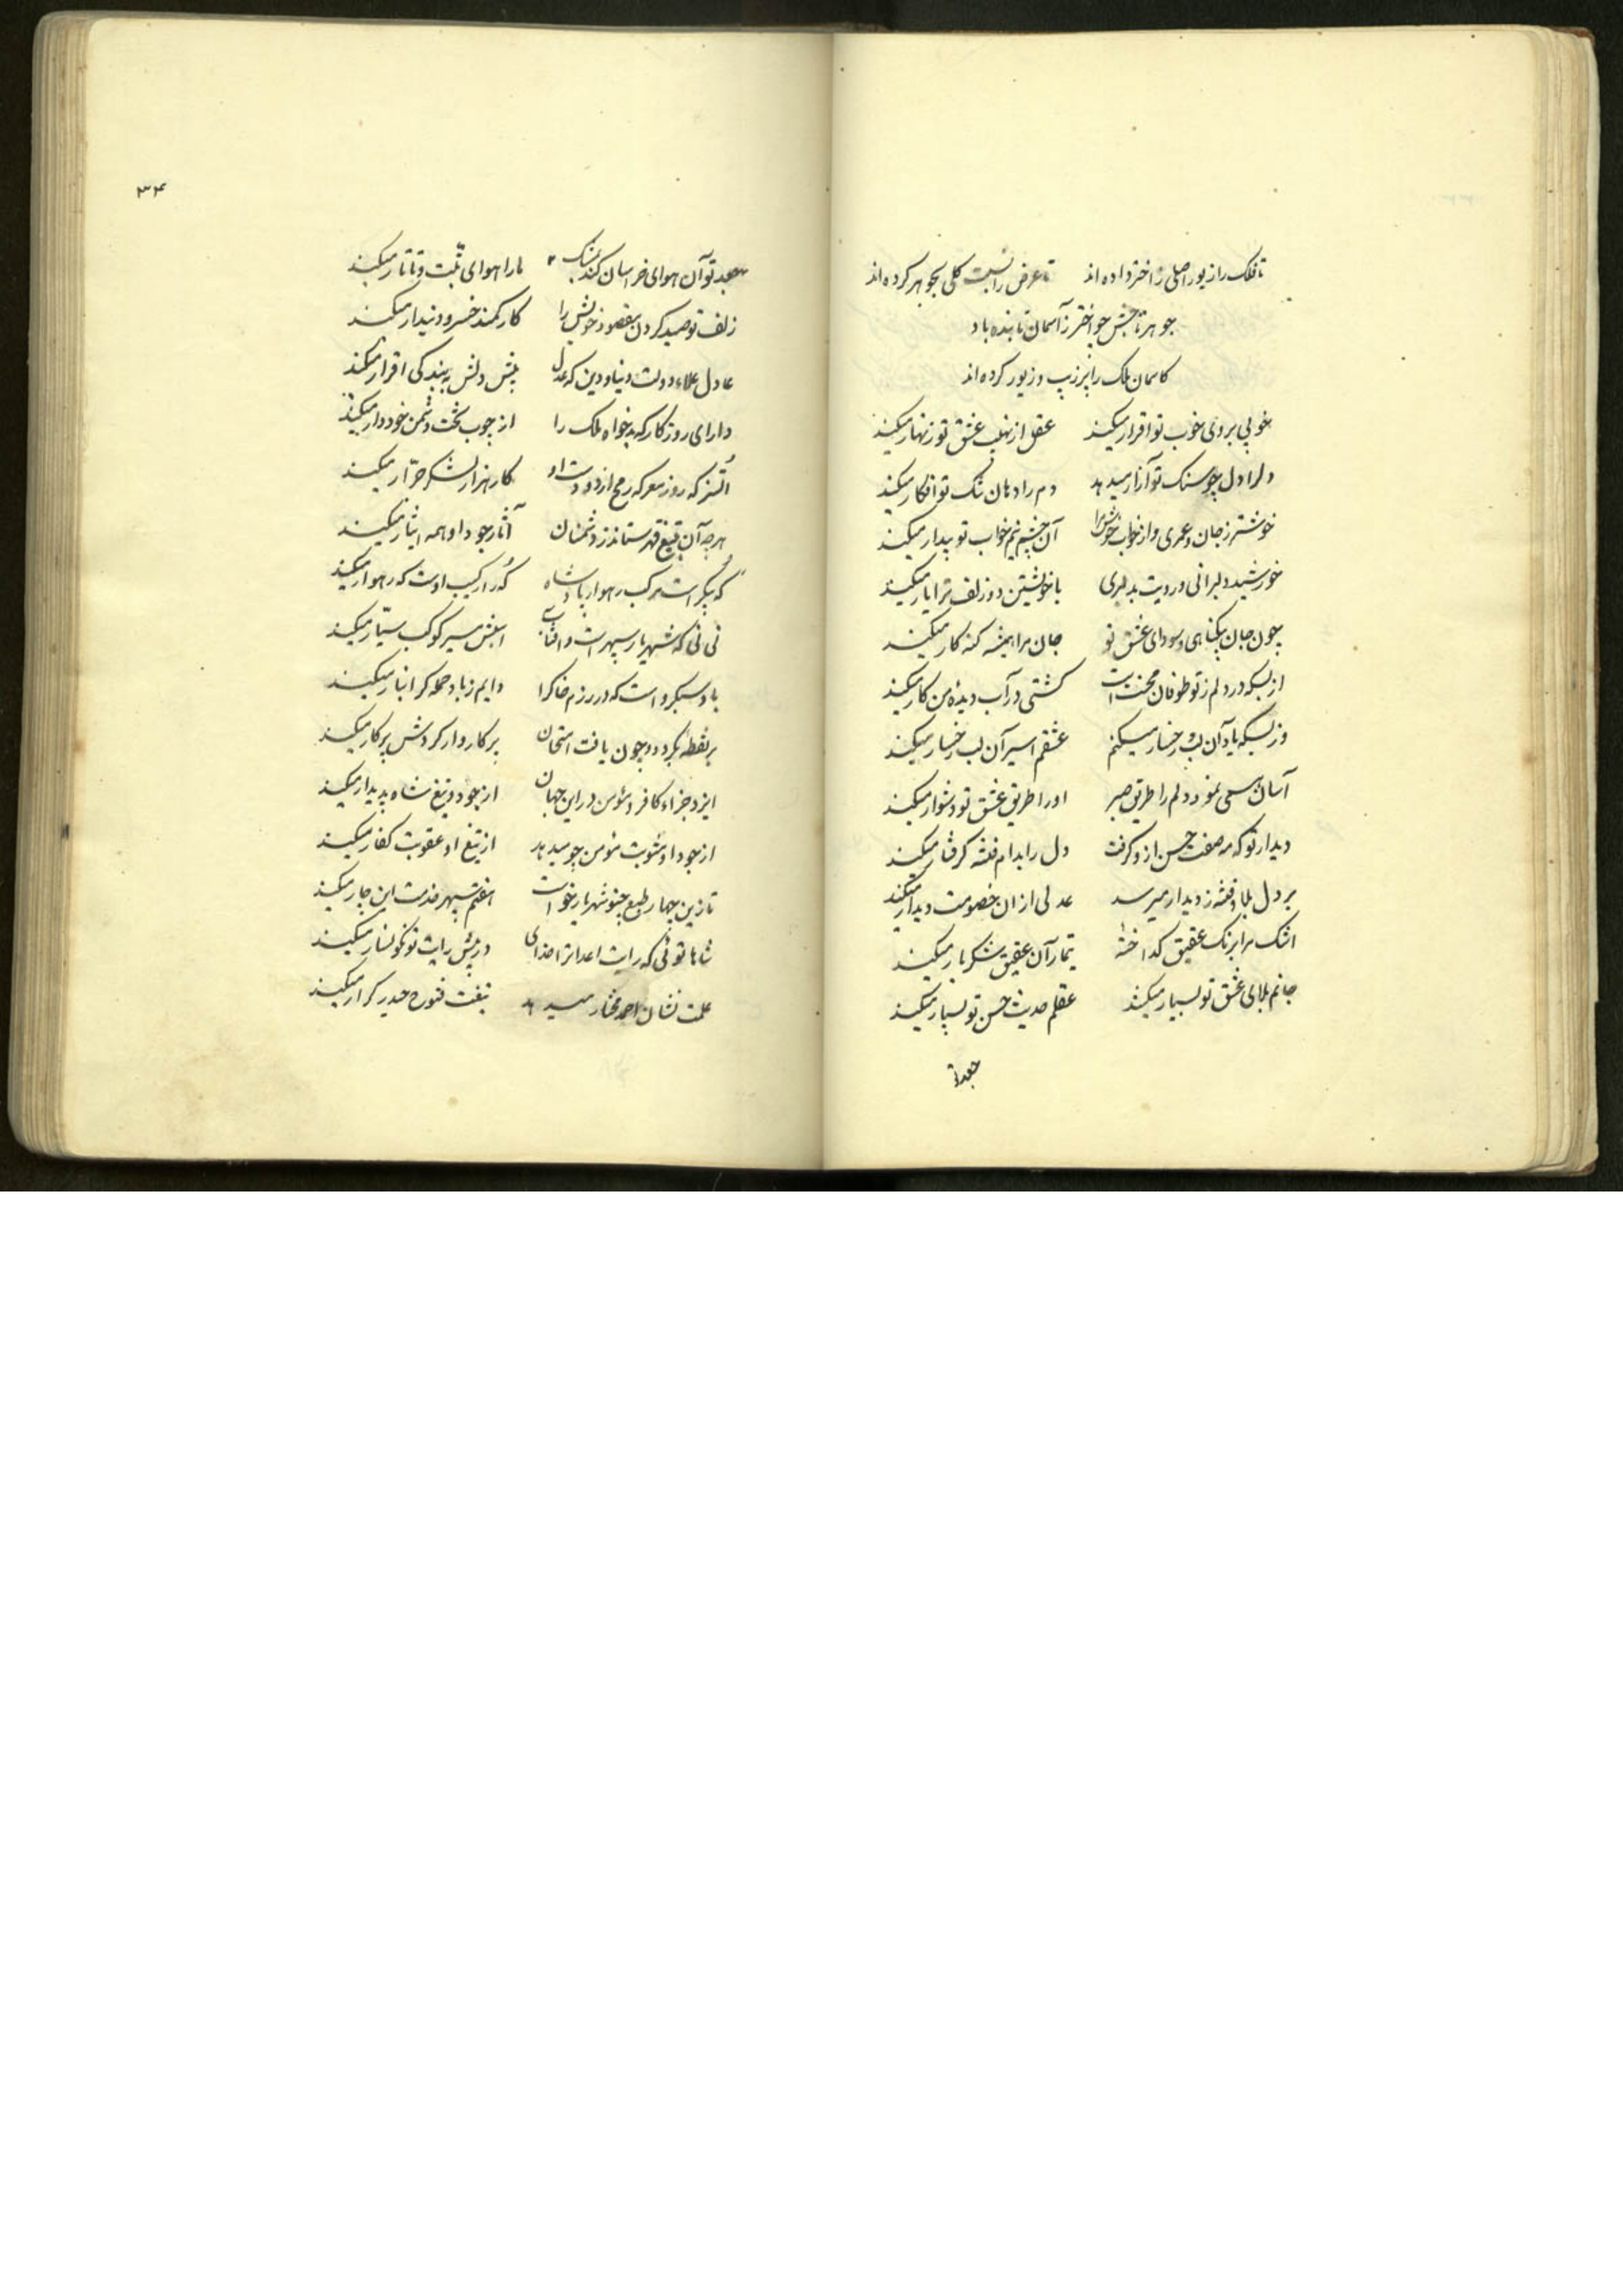 تا فلک را زیور اصلی ز اختر داده‌اند تا عرض را نسبت کلی بجوهر کرده‌اند
جوهر تا جش چو اختر ز آسمان تابنده باد
کاسمان ملک را پر زیب و زیور کرده‌اند
خوبی بروی خوب تو اقرار میکند عقل از نهیب عشق تو زنهار میکند
دلرا دل چو سنک تو آزار میدهد دم را دهان تنک تو افکار میکند
خوشتر ز جان و عمری و از خواب خوش مرا آن چشم نیم خواب تو بیدار میکند
خورشید دلبرانی و رویت بدلبری با خویشتن دو زلف ترا یار میکند
چون جان بیکناهی و سودای عشق تو جان مرا همیشه کنه کار میکند
از بسکه در دلم ز تو طوفان محنت است کشتی در آب دیدهٔ من کار میکند
وز بسکه یاد آن لب و رخسار میکنم عشقم اسیر آن لب و رخسار میکند
آسان همی نمود دلم را طریق صبر او را طریق عشق تو دشوار میکند
دیدار تو که مه صفت حسن ازو کرفت دل را بدام فتنه کرفتار میکند
بر دل بلا و فتنه ز دیدار میرسد عدلی از ان خصومت دیدار میکند
اشک مرا برنک عقیق کداخته تیمار آن عقیق شکر بار میکند
جانم بلای عشق تو بسیار میکشد عقلم حدیث حسن تو بسیار میکند
جعد تو
۳۳۴
جعد تو آن هوای خراسان کند بمشک ما را هوای تبت و تاتار میکند
زلف تو صید کردن مقصود خویش را کار کمند خسرو دیندار میکند
عادل علاء دولت دنیا و دین که عدل پیش دلش ببندکی اقرار میکند
دارای روزکار که بدخواه ملک را از چوب تخت دشمن خود دار میکند
اتسز که روز معرکه رمح از دو دست او کار هزار لشکر جرار میکند
هرچه آن بتیغ قهر ستاند ز دشمنان آثار جود او همه ایثار میکند
که پیکر است مرکب رهوار پادشاه که را رکیب اوست که رهوار میکند
نی نی که شهریار سپهر است و افتاب اسبش مسیر کوکب سیار میکند
باد سبکرو است که در رزم خاکرا دایم ز باد حمله کرانبار میکند
بر نقطه بکردد و چون یافت امتحان پرکاروار کردش پرکار میکند
ایزد جزاء کافر و مؤمن در این جهان از جود و تیغ شاه پدیدار میکند
از جود او مثوبت مؤمن چو میدهد از تیغ او عقوبت کفار میکند
تا زین چهار طبع چنو شهریار خواست هفتم سپهر خدمت این چار میکند
شاها توئی که رایت اعدا ترا خدای در پیش رایت تو نکونسار میکند
علمت نشان احمد مختار میدهد تیغت فتوح حیدر کرار میکند